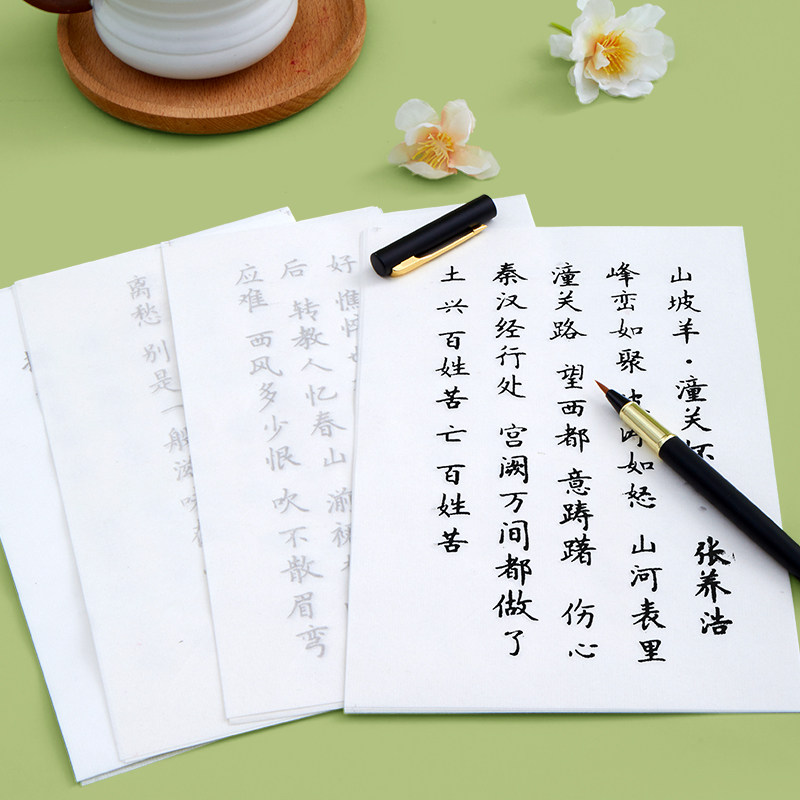 山坡羊·潼关
张养浩
峰峦如聚 如怒 山河表里
潼关路 望西都 意踌躇 伤心
秦汉经行处 宫阙万间都做了
土 兴百姓苦 亡百姓苦
好 憔悴
后 转教人忆春山 湔裙
应难 西风多少恨 吹不散眉弯
离愁 别是一般滋味